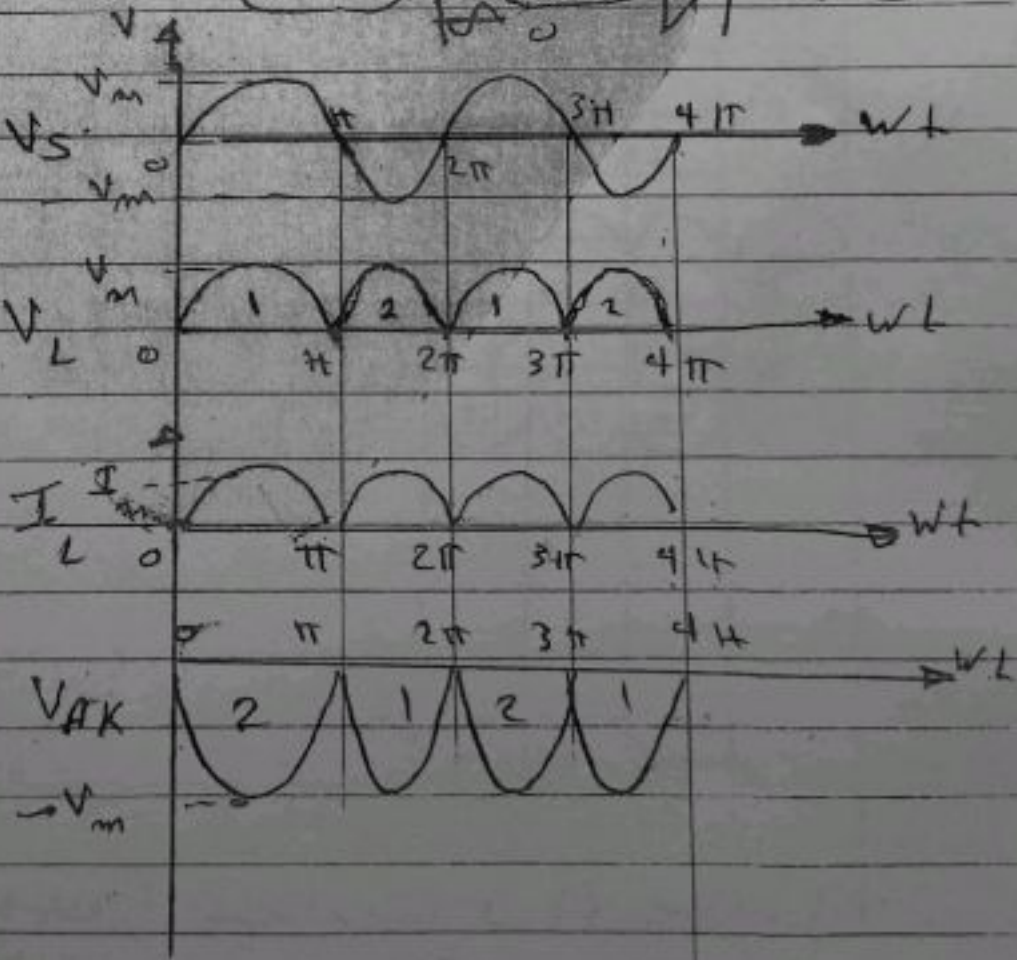 V
Vm
Vs
0
π 2π 3π 4π
wt
Vm
Vm
VL
0
1 2 1 2
π 2π 3π 4π
wt
I
IL
0
π 2π 3π 4π
wt
0 π 2π 3π 4π
wt
VAK
2 1 2 1
-Vm